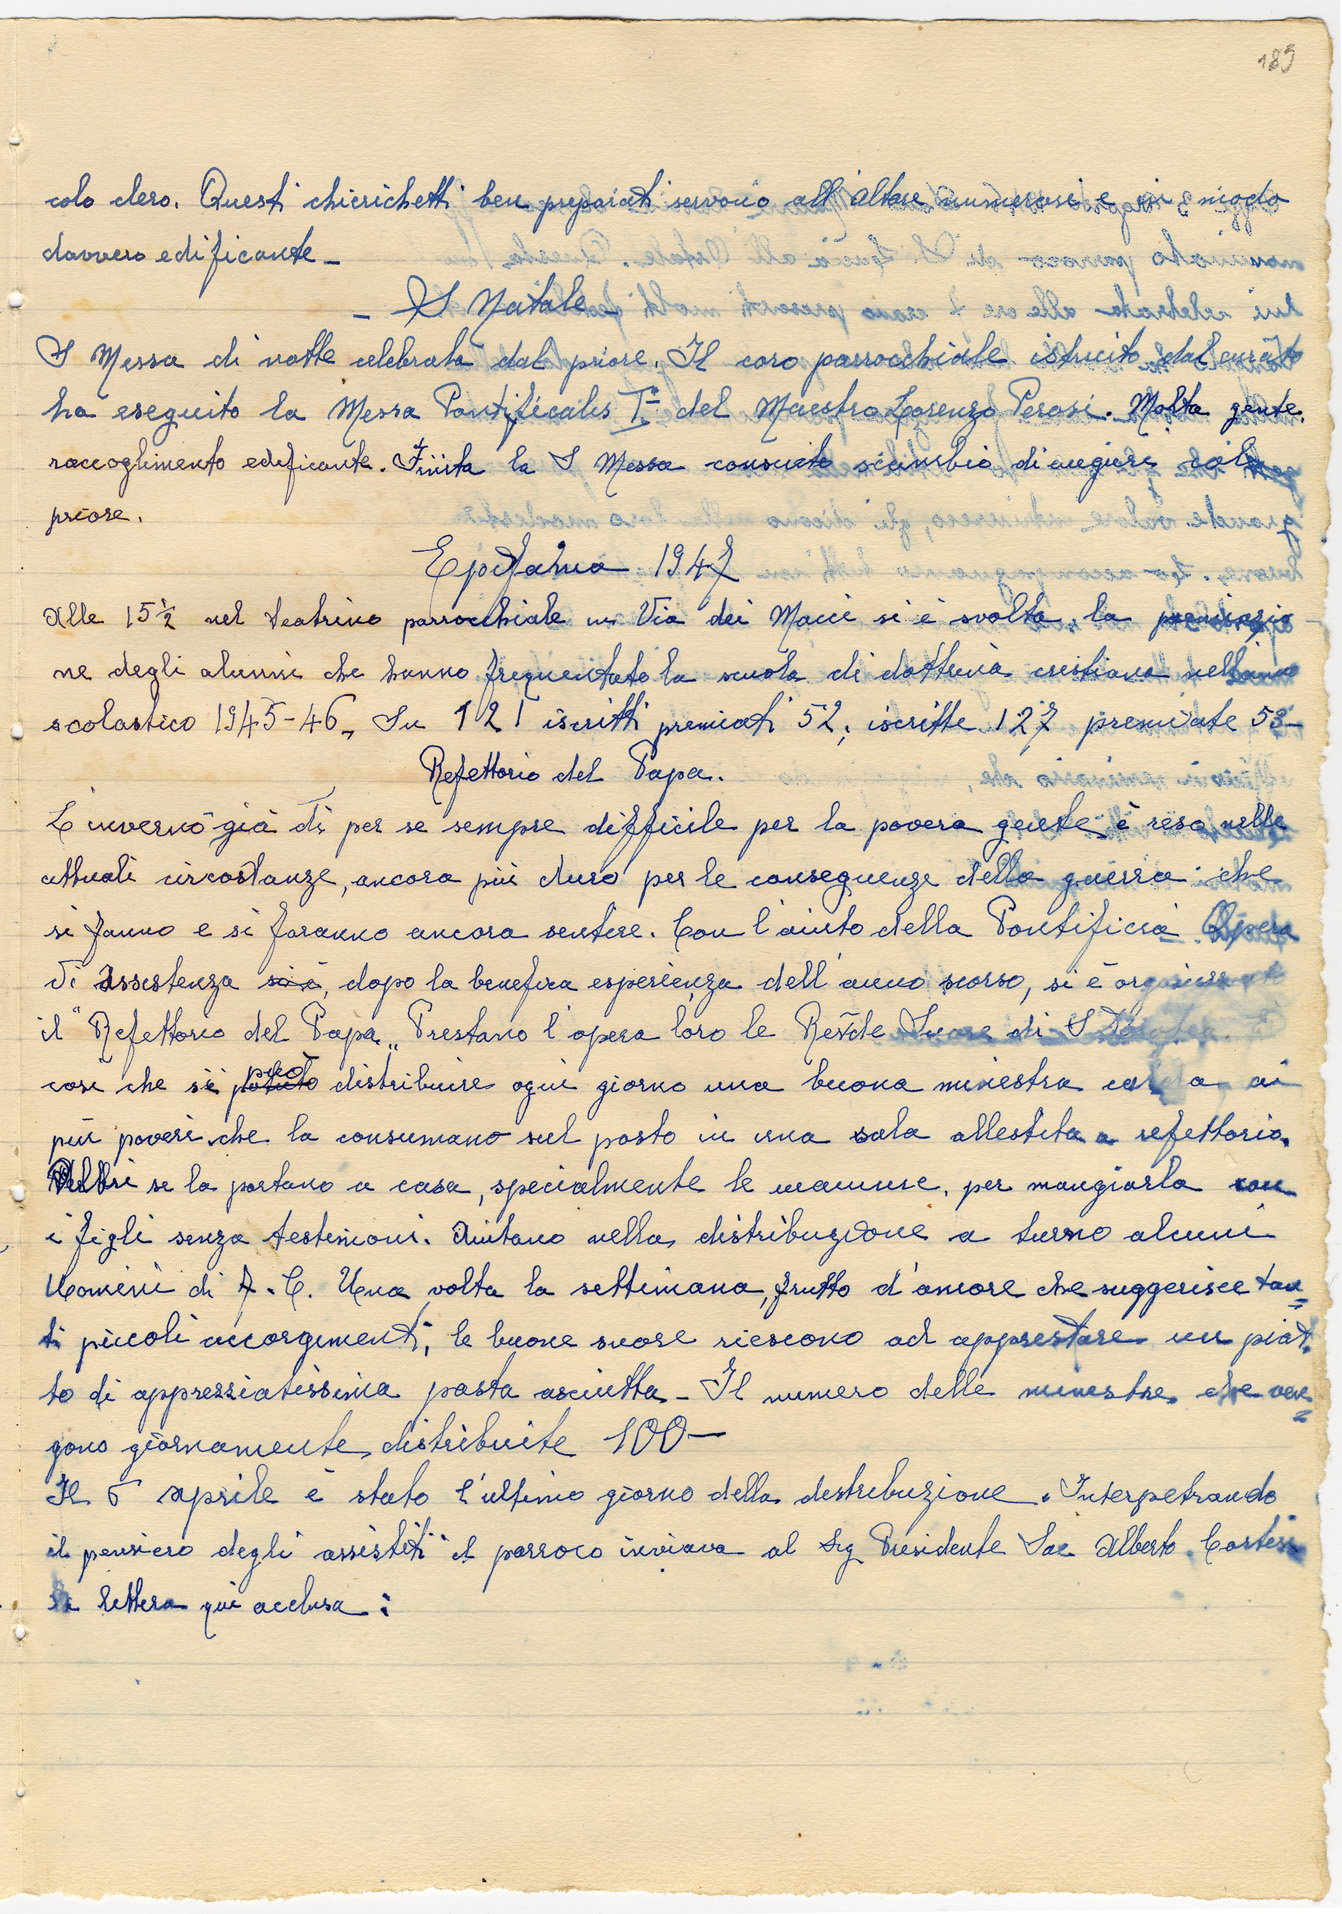 189
colo clero. Questi chierichetti ben preparati servono all'altare numerosi e in modo
davvero edificante -
- S Natale -
S Messa di notte celebrata dal priore. Il coro parrocchiale istruito dal curato
ha eseguito la Messa Pontificalis Iª del Maestro Lorenzo Perosi. Molta gente.
raccoglimento edificante. Finita la S Messa consueto scambio di auguri col
priore.
Epifania 1947
Alle 15½ nel teatrino parrocchiale in Via dei Macci si è svolta la premiazio
ne degli alunni che hanno frequentato la scuola di dottrina cristiana nell'anno
scolastico 1945-46. Su 121 iscritti premiati 52; iscritte 127 premiate 53-
Refettorio del Papa.
L'inverno già di per se sempre difficile per la povera gente è reso nelle
attuali circostanze, ancora più duro per le conseguenze della guerra che
si fanno e si faranno ancora sentire. Con l'aiuto della Pontificia Opera
di Assistenza si è, dopo la benefica esperienza dell'anno scorso, si è organizzato
il "Refettorio del Papa„ Prestano l'opera loro le Rev.de Suore di S
così che si può potuto distribuire ogni giorno una buona minestra calda ai
più poveri che la consumano sul posto in una sala allestita a refettorio.
Altri se la portano a casa, specialmente le mamme, per mangiarla con
i figli senza testimoni. Aiutano nella distribuzione a turno alcuni
Uomini di A. C. Una volta la settimana, frutto d'amore che suggerisce tan=
ti piccoli accorgimenti, le buone suore riescono ad apprestare un piat.
to di apprezziatissima pasta asciutta - Il numero delle minestre che ven=
gono giornamente distribuite 100-
Il 6 aprile è stato l'ultimo giorno della distribuzione. Interpetrando
il pensiero degli assistiti il parroco inviava al Sig Presidente Sac Alberto Cortesi
la lettera qui acclusa: